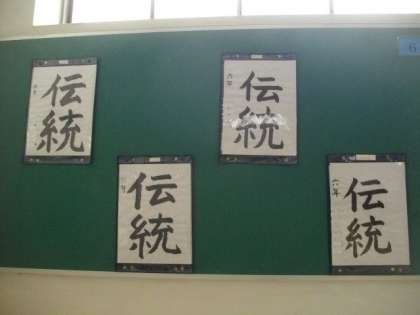 伝統
伝統
六年
伝統
伝統
六年
6